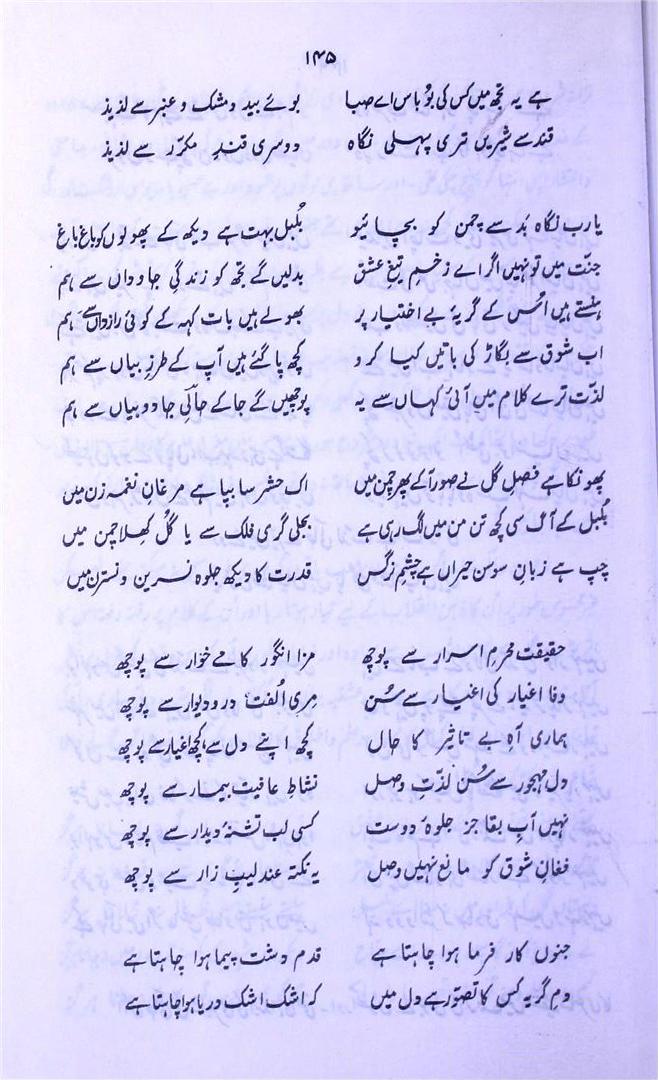 ۱۴۵
ہے یہ تجھ میں کس کی بُو باس اے صبا بوئے بید و مشک و عنبر سے لذیذ
قند سے شیریں تری پہلی نگاہ دوسری قندِ مکرّر سے لذیذ
یارب نگاہ بد سے چمن کو بچائیو بُلبل بہت ہے دیکھ کے پھولوں کو باغ باغ
جنّت میں تو نہیں اگر اے زخمِ تیغِ عشق بدلیں گے تجھ کو زندگیِ جاوداں سے ہم
ہنستے ہیں اس کے گریۂ بے اختیار پر بھولے ہیں بات کہہ کے کوئی رازداں سے ہم
اب شوق سے بگاڑ کی باتیں کیا کرو کچھ پا گئے ہیں آپ کے طرزِ بیاں سے ہم
لذّت ترے کلام میں آئی کہاں سے یہ پوچھیں گے جا کے حالیِ جادو بیاں سے ہم
پھونکا ہے فصلِ گل نے صور آ کے پھر چمن میں اک حشر سا بپا ہے مرغانِ نغمہ زن میں
بُلبل کے آگ سی کچھ تن من میں لگ رہی ہے بجلی گری فلک سے یا گُل کھلا چمن میں
چپ ہے زبانِ سوسن حیراں ہے چشمِ نرگس قدرت کا دیکھ جلوہ نسرین و نسترن میں
حقیقت محرمِ اسرار سے پوچھ مزا انگور کا مے خوار سے پوچھ
وفا اغیار کی اغیار سے سُن مِری الُفت در و دیوار سے پوچھ
ہماری آہِ بے تاثیر کا حال کچھ اپنے دل سے، کچھ اغیار سے پوچھ
دلِ مہجور سے سُن لذّتِ وصل نشاطِ عافیت بیمار سے پوچھ
نہیں آبِ بقا جز جلوہ دوست کسی لب تشنہ دیدار سے پوچھ
فغانِ شوق کو مانع نہیں وصل یہ نکتہ عندلیبِ زار سے پوچھ
جنوں کار فرما ہوا چاہتا ہے قدم دشت پیما ہوا چاہتا ہے
دمِ گریہ کس کا تصوّر ہے دل میں کہ اشک اشک دریا ہوا چاہتا ہے